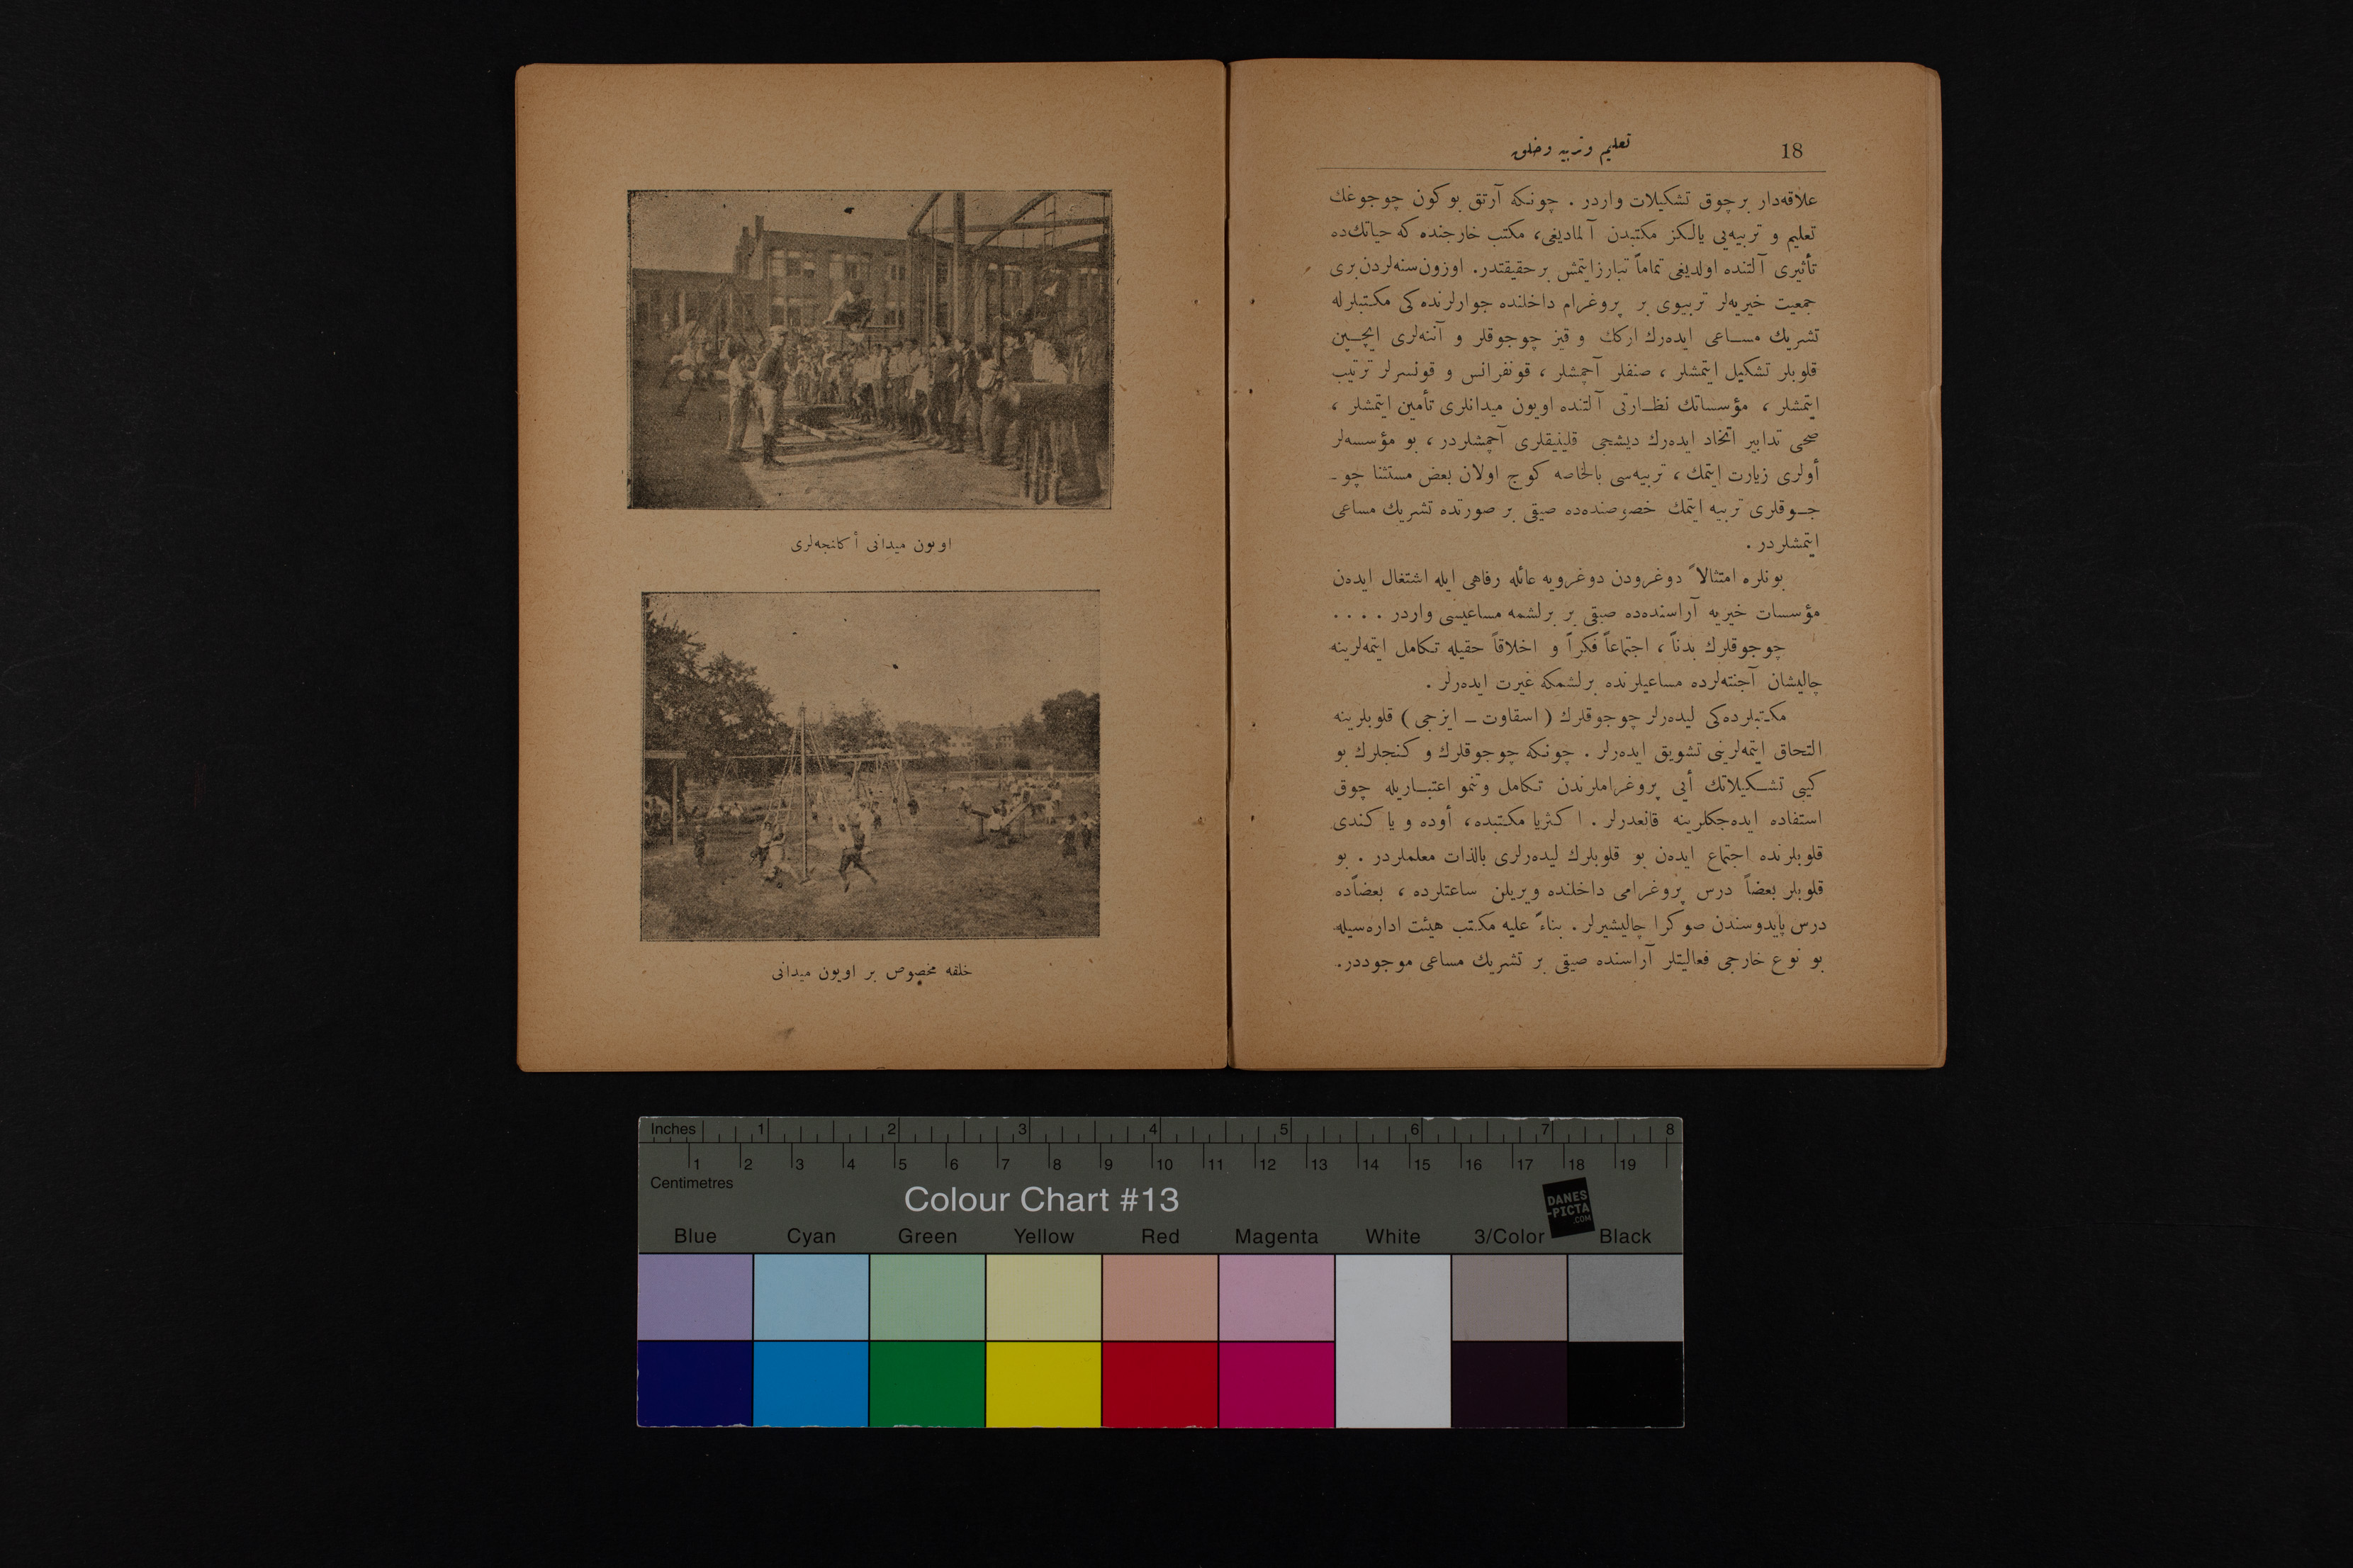 18
تعليم وتربيه وخلق
علاقه‌دار برچوق تشكيلات واردر . چونكه آرتق بوكون چوجوغك
تعليم و تربيه‌يى يالكز مكتبدن آلماديغى، مكتب خارجنده‌كه حياتك‌ده
تأثيرى آلتنده اولديغى تماماً تبارزايتمش برحقيقتدر. اوزون‌سنه‌لردن‌برى
جمعيت خيريه‌لر تربيوى بر پروغرام داخلنده جوارلرنده‌كى مكتبلرله
تشريك مساعى ايده‌رك اركك و قيز چوجوقلر و آننه‌لرى ايچين
قلوبلر تشكيل ايتمشلر ، صنفلر آچمشلر ، قونفرانس و قونسرلر ترتيب
ايتمشلر ، مؤسساتك نظارتى آلتنده اويون ميدانلرى تأمين ايتمشلر ،
صحى تدابير اتخاذ ايده‌رك ديشجى قلينيقلرى آچمشلردر ، بو مؤسسه‌لر
أولرى زيارت ايتمك ، تربيه‌سى بالخاصه كوج اولان بعض مستثنا چو -
جوقلرى تربيه ايتمك خصوصنده‌ده صيقى بر صورتده تشريك مساعى
ايتمشلردر .
بونلره امتثالاً دوغرودن دوغرويه عائله رفاهى ايله اشتغال ايده‌ن
مؤسسات خيريه آراسنده‌ده صيقى بر برلشمه مساعيسى واردر . . . .
چوجوقلرك بدناً ، اجتماعاً فكراً و اخلاقاً حقيله تكامل ايتمه‌لرينه
چاليشان آجنته‌لرده مساعيلرنده برلشمكه غيرت ايده‌رلر .
مكتبلرده‌كى ليده‌رلر چوجوقلرك ( اسقاوت - ايزجى ) قلوبلرينه
التحاق ايتمه‌لرينى تشويق ايده‌رلر . چونكه چوجوقلرك و كنجلرك بو
كيبى تشكيلاتك أيى پروغراملرندن تكامل ونمو اعتباريله چوق
استفاده ايده‌جكلرينه قانعدرلر . اكثريا مكتبده، أوده و يا كندى
قلوبلرنده اجتماع ايده‌ن بو قلوبلرك ليده‌رلرى بالذات معلملردر . بو
قلوبلر بعضاً درس پروغرامى داخلنده ويريلن ساعتلرده ، بعضاًده
درس پايدوسندن صوكرا چاليشيرلر . بناءً عليه مكتب هيئت اداره‌سيله
بو نوع خارجى فعاليتلر آراسنده صيقى بر تشريك مساعى موجوددر.
اويون ميدانى أكلنجه‌لرى
خلقه مخصوص بر اويون ميدانى
Inches 1 2 3 4 5 6 7 8
1 2 3 4 5 6 7 8 9 10 11 12 13 14 15 16 17 18 19
Centimetres
Colour Chart #13
DANES
-PICTA
.COM
Blue Cyan Green Yellow Red Magenta White 3/Color Black